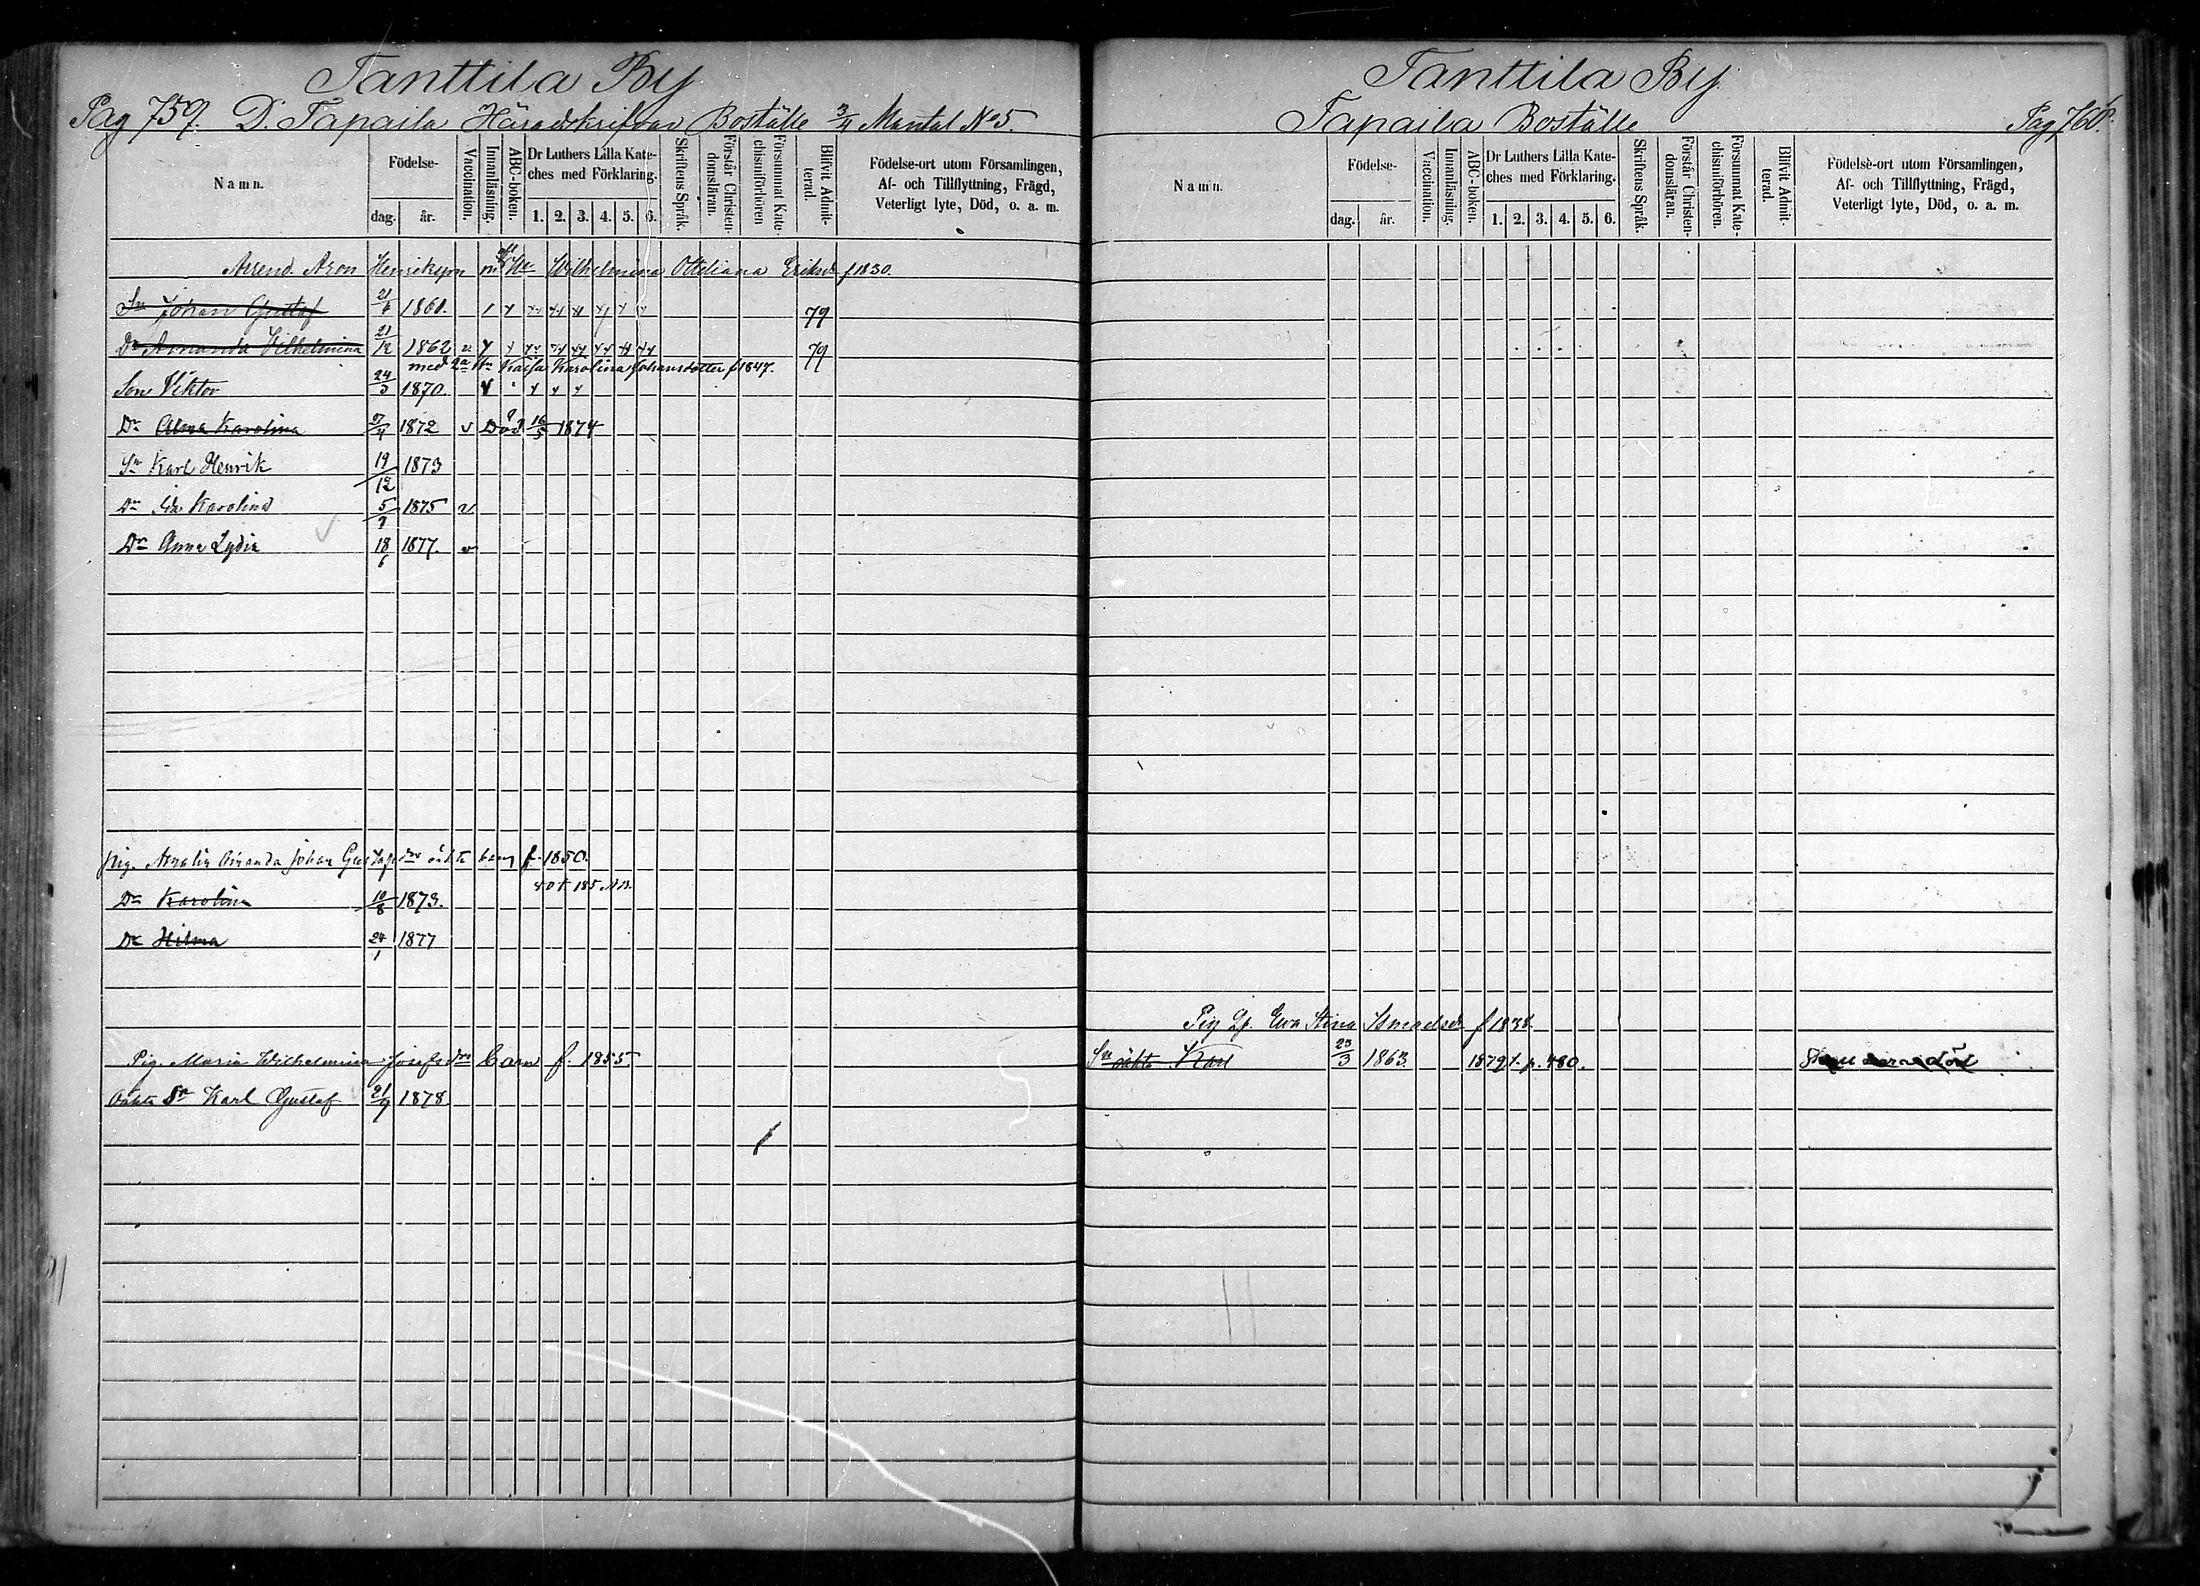 Tanttila By
Pag 759. D. Tapaila Häradskrifvar Boställe 3/4 Mantal No 5.
Namn. Födelse- dag. år. Vaccination. Innanläsning. ABC-boken. Dr Luthers Lilla Kateches med Förklaring. 1. 2. 3. 4. 5. 6. Skriftens Språk. Förstår Christendomsläran. Försummat Katechismiförhören Blifvit Admitterad. Födelse-ort utom Församlingen, Af- och Tillflyttning, Frägd, Veterligt lyte, Död, o. a. m.
Arrend. Aron Henriksson m Wilhelmina Ottiliana f 1830.
Sn Johan Gustaf 21/6 1860. 79
Dr Amanda Vilhelmina 21/12 1862 79
med 2a Hu Kajsa Karolina Johansdotter f 1847.
Son Viktor 24/3 1870.
Dr Alma Karolina 1872 v Död 16/5 1874
Sn Karl Henrik 19/12 1873
Dr Ida Karolina 5/9 1875 v
Dr Anna Lydia 18/6 1877. v
pig. Amalia Amanda Johan Gustafsdrs oäkta barn f. 1850.
Dr Karolina 10/8 1873.
Dr Hilma 24/1 1877
Pig. Maria Wilhelmina Josefsdrs barn f. 1855
Oäkta Sn Karl Gustaf 21/9 1878.
Tanttila By.
Tapaila Boställe Pag 760.
Namn. Födelse- dag. år. Vaccination. Innanläsning. ABC-boken. Dr Luthers Lilla Kateches med Förklaring. 1. 2. 3. 4. 5. 6. Skriftens Språk. Förstår Christendomsläran. Försummat Katechismiförhören. Blifvit Admitterad. Födelse-ort utom Församlingen, Af- och Tillflyttning, Frägd, Veterligt lyte, Död, o. a. m.
Pig Eva Stina Ismaelsdr f 1838.
Sn oäkta Karl 23/3 1863. 1879 t. p. 480.